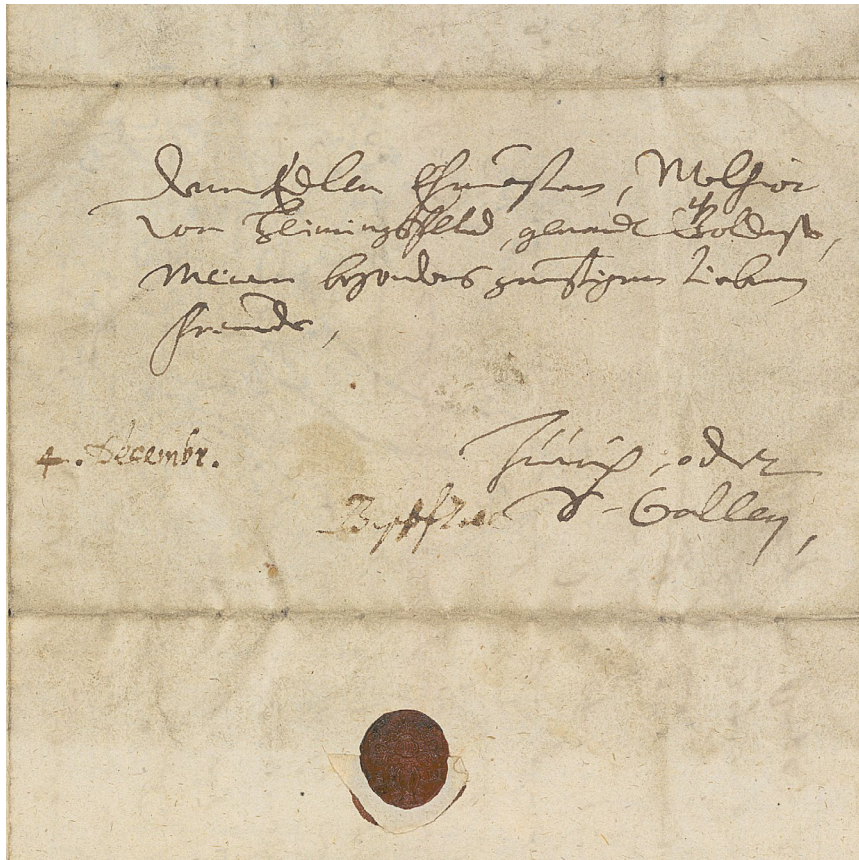 Dem Edlen Ehrnvesten, Melchior
von Heimingsfeld, genandt Goldast,
Meinen besonders gunstigen lieben
freundt,
4. Decembr.
Zürich, oder
S. Gallen,